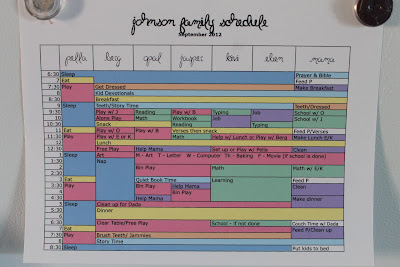 johnson family schedule
September 2012
pella
berg
opal
jasper
levi
eben
mama
6:30 Sleep Prayer & Bible
7 Eat Feed P
7:30 Play Get Dressed Make Breakfast
8 Kid Devotionals
8:30 Breakfast
9 Sleep Teeth/Story Time Teeth/Dressed
9:30 Play w/ J Reading Play w/ B Typing Job School w/ O
10 Alone Play Math Workbook Job School w/ J
10:30 Snack Reading Reading Typing
11 Eat Play w/ O Play w/ B Verses then snack Feed P/Verses
11:30 Play Play w/ E or K Math Help w/ Lunch or Play w/ Berg Make Lunch E/K
12 Lunch
12:30 Free Play Help Mama Set up or Play w/ Pella Clean
1 Sleep Art M - Art T - Letter W - Computer TH - Baking F - Movie (if school is done)
1:30 Nap
2 Bin Play Math Math w/ E/K
2:30
3 Eat Quiet Book Time Learning Feed P
3:30 Play Bin Play Help Mama Clean
4 Bin Play
4:30 Help Mama Make dinner
5 Sleep Clean up for Dada
5:30 Dinner
6
6:30 Clear Table/Free Play School - if not done Couch Time w/ Dada
7 Eat Feed P/Clean up
7:30 Play Brush Teeth/ Jammies
8 Story Time
8:30 Sleep Put kids to bed